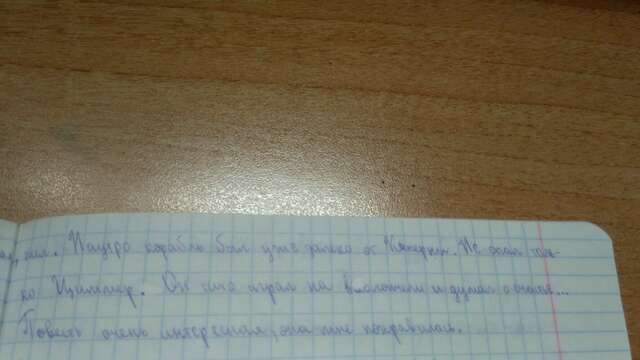 тил. Наутро корабль был уже далеко от Венеции. Не спал толь-
ко Циммер. Он тихо играл на виолончели и думал о счастье...
Повесть очень интересная, она мне понравилась.